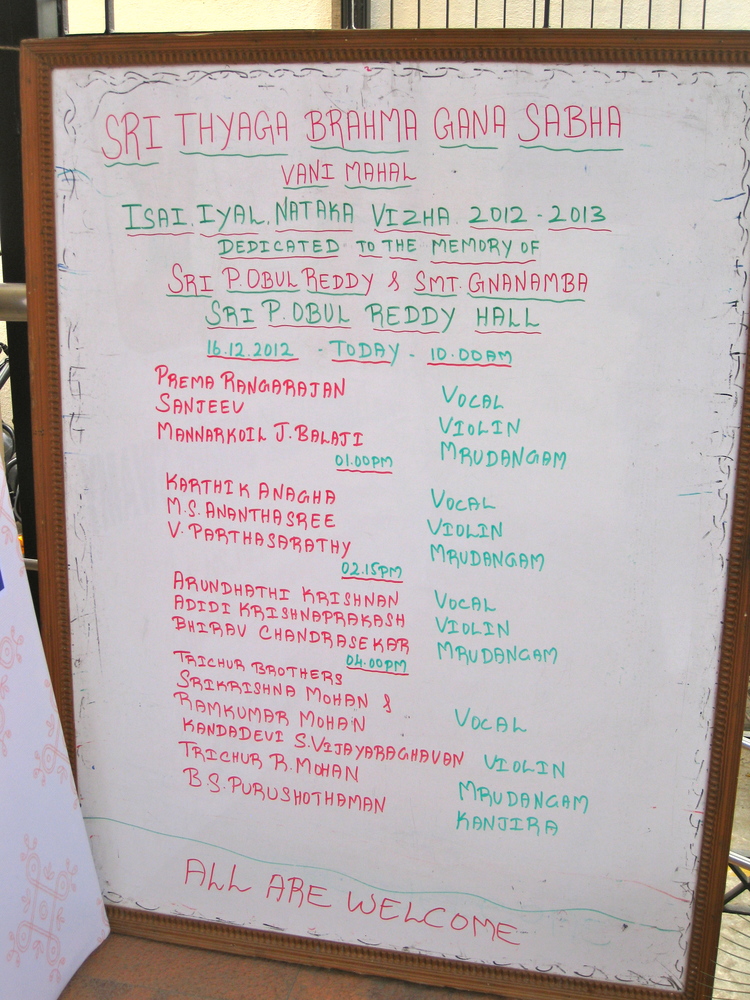 SRI THYAGA BRAHMA GANA SABHA
VANI MAHAL
ISAI, IYAL, NATAKA VIZHA 2012 - 2013
DEDICATED TO THE MEMORY OF
SRI P. OBUL REDDY & SMT. GNANAMBA
SRI P. OBUL REDDY HALL
16.12.2012 - TODAY - 10.00AM
PREMA RANGARAJAN VOCAL
SANJEEV VIOLIN
MANNARKOIL J. BALAJI MRUDANGAM
01.00PM
KARTHIK ANAGHA VOCAL
M.S. ANANTHASREE VIOLIN
V. PARTHASARATHY MRUDANGAM
02.15PM
ARUNDHATHI KRISHNAN VOCAL
ADIDI KRISHNAPRAKASH VIOLIN
BHIRAV CHANDRASEKAR MRUDANGAM
04.00PM
TRICHUR BROTHERS
SRIKRISHNA MOHAN &
RAMKUMAR MOHAN VOCAL
KANDADEVI S. VIJAYARAGHAVAN VIOLIN
TRICHUR R. MOHAN MRUDANGAM
B.S. PURUSHOTHAMAN KANJIRA
ALL ARE WELCOME